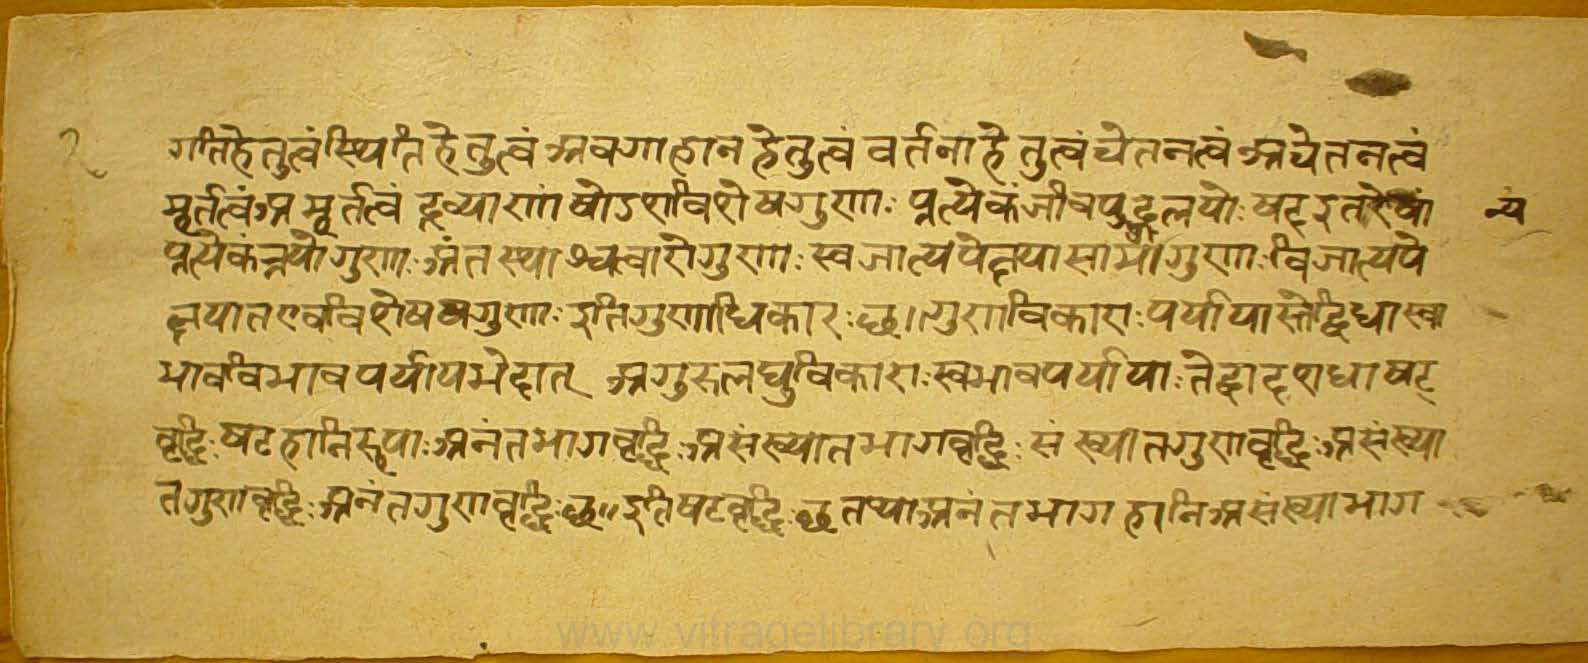 २
गतिहेतुत्वं स्थितिहेतुत्वं अवगाहनहेतुत्वं वर्तनाहेतुत्वं चेतनत्वं अचेतनत्वं
मूर्तत्वं अमूर्तत्वं द्रव्याणां षोडशविशेषगुणाः प्रत्येकं जीवपुद्गलयोः षट् इतरेषां
प्रत्येकं त्रयो गुणाः अंतस्थाश्चत्वारो गुणाः स्वजात्यपेक्षया सामा गुणाः विजात्यपे
क्षया त एव विशेषगुणाः इति गुणाधिकारः छ ॥ गुणविकाराः पर्यायास्ते द्वेधा स्व
भावविभावपर्यायभेदात् अगुरुलघुविकाराः स्वभावपर्यायाः ते द्वादशधा षट्
वृद्धिः षट हानिरूपाः अनंतभागवृद्धिः असंख्यातभागवृद्धिः संख्यातगुणवृद्धिः असंख्या
तगुणवृद्धिः अनंतगुणवृद्धिः छ ॥ इति षटवृद्धिः छ तथा अनंतभागहानि असंख्याभाग
www.vitragelibrary.org